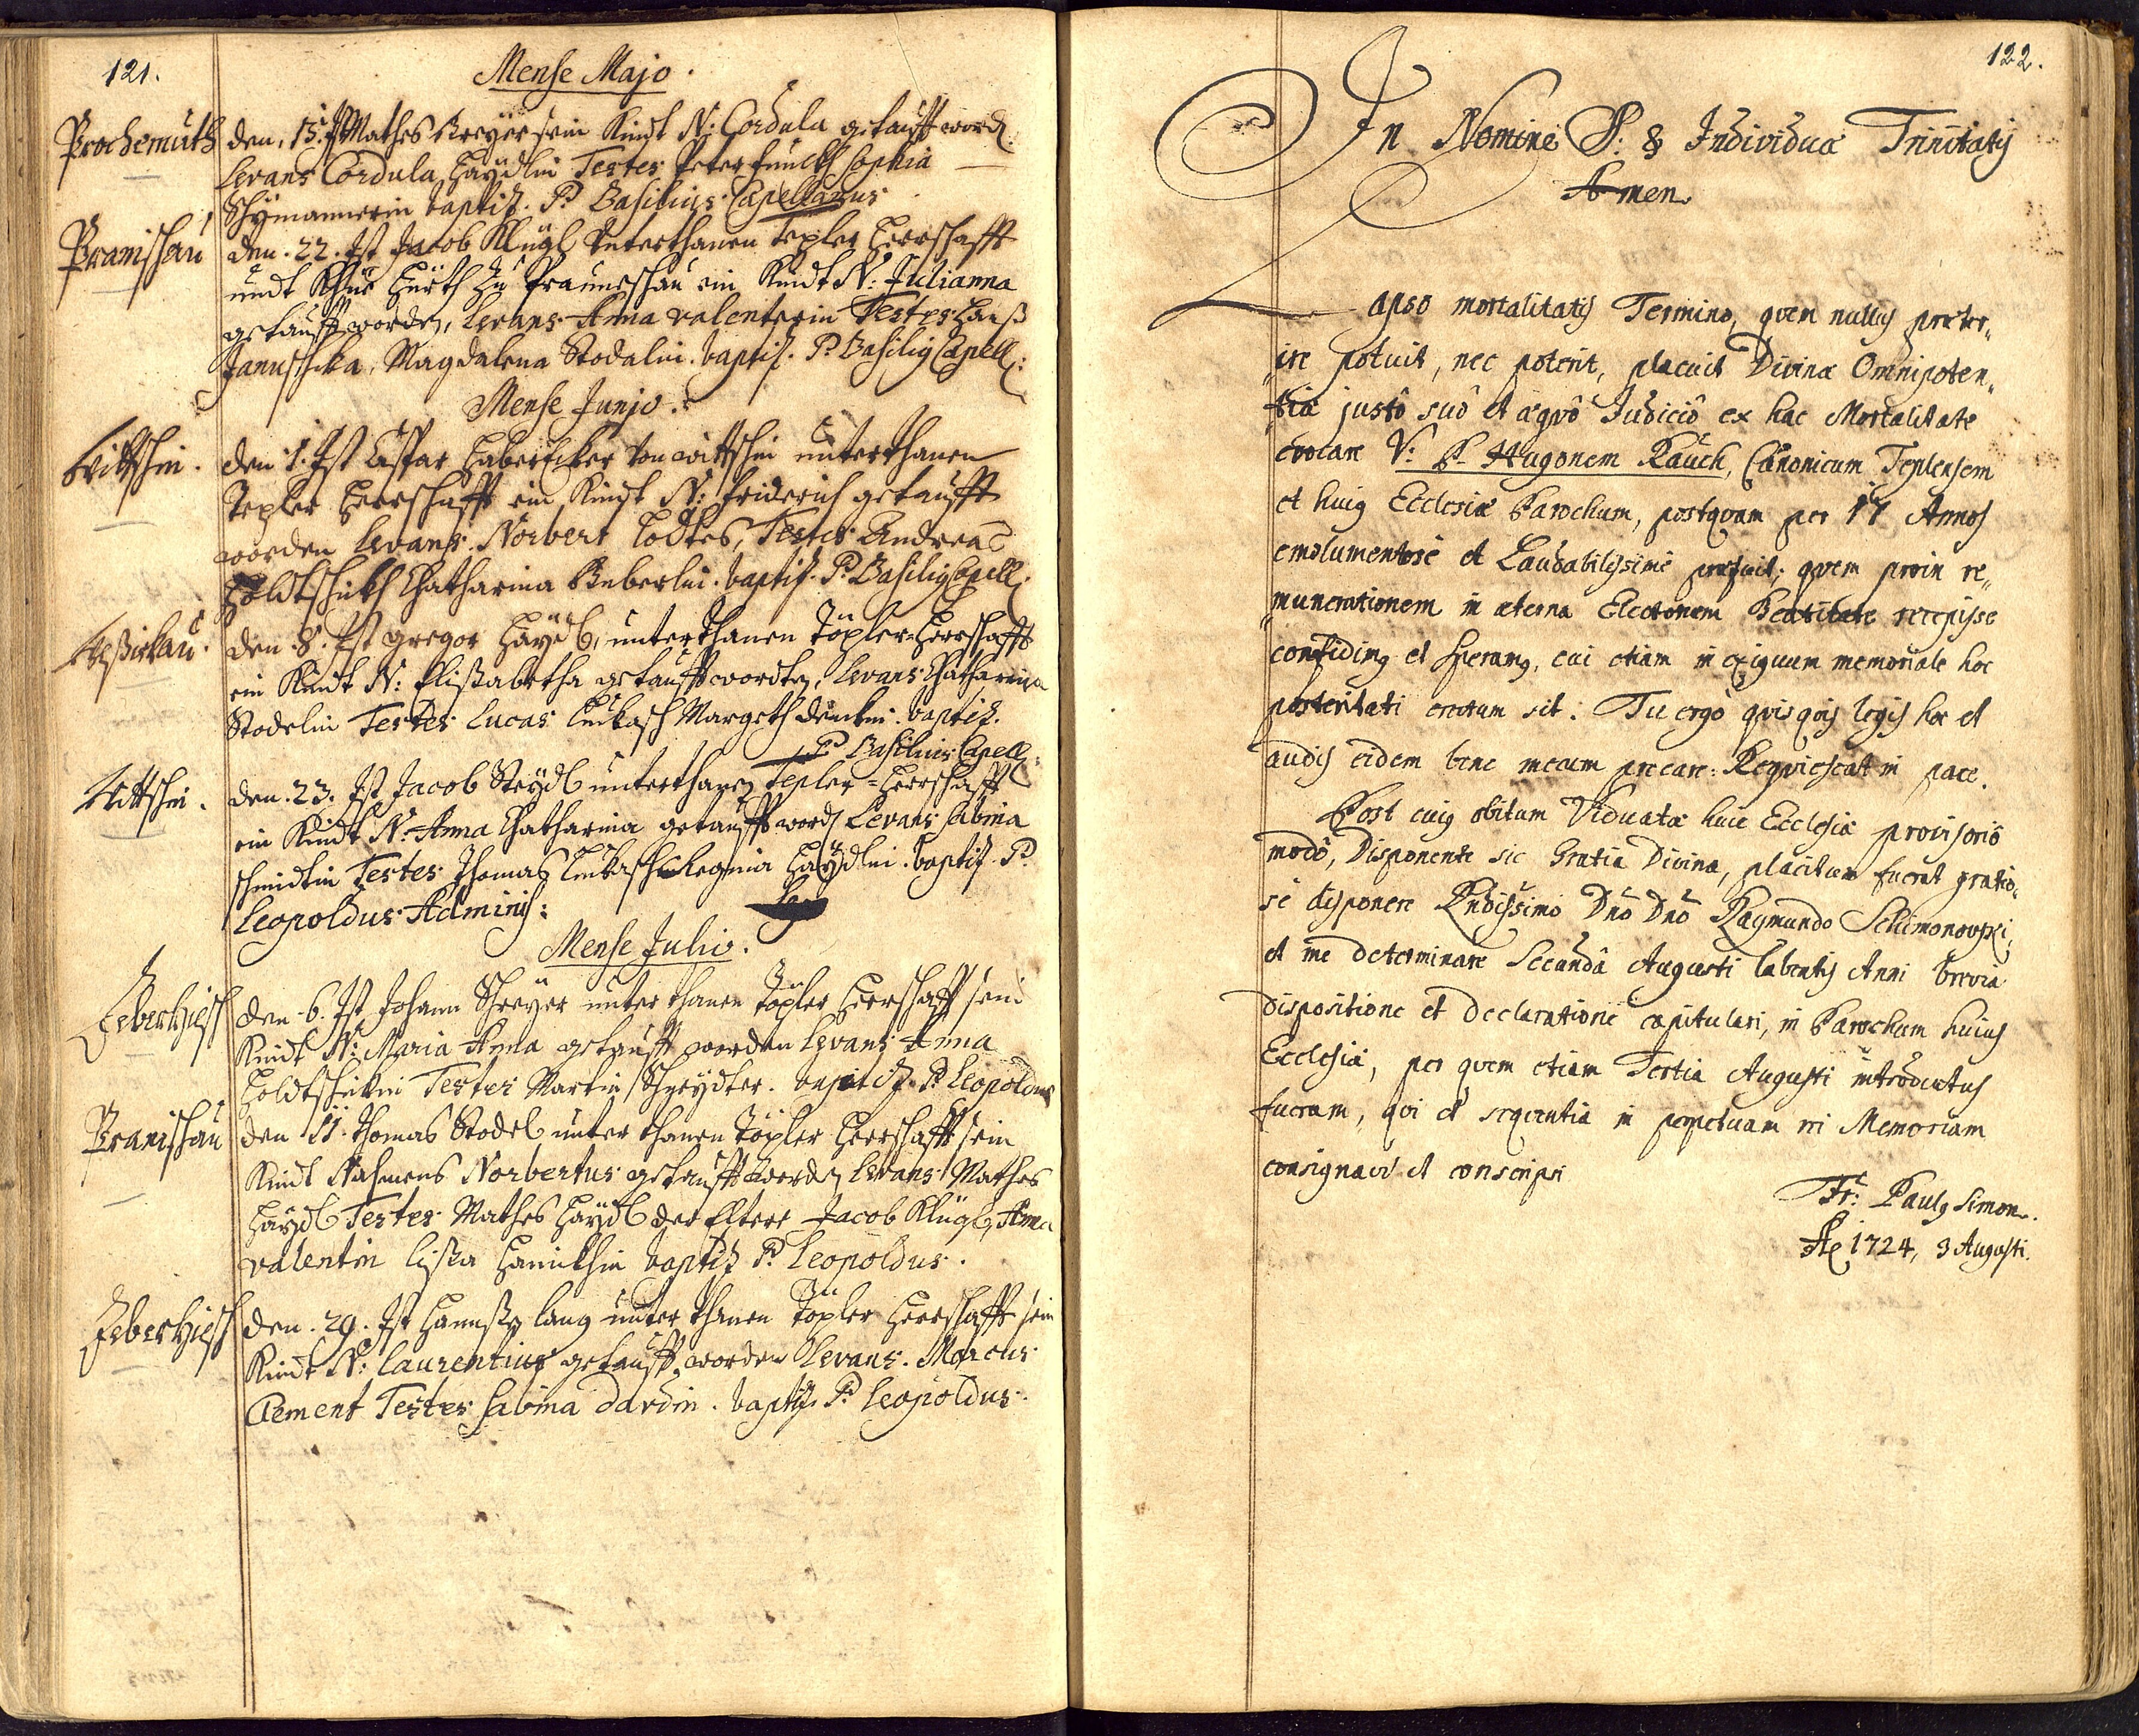 121.
Mense Majo.
Prochomuth
den. 13. Jst Mathes Kreyer sein Kindt N: Cordula getaufft word
Levans Cordula Haÿdlin Testes Peter Funckh Sophia
Schymannerin baptiz. P. Basilius Capellanus
Pranischau
den. 22. Jst Jacob Klügl Unterthanen Tepler Herrschafft
undt Hürth zu Prauneschau ein Kindt N: Julianna
getaufft worden, Levans Anna Valenterin Testes Hanß
Januschka, Magdalena Stodalin. baptiz. P. Basilig Capell:
Mense Junjo.
Wittschin.
den 1. Jst Caspar Haberzcker von Wittschin unterthanen
Tepler Herrschafft ein Kindt N: Friderich getaufft
worden Levans. Norbert Lodtes, Testes Andreas
Holdtschickh Chatharina Beberlin. baptiz. P. Basilig Capell:
den 8. Jst Gregor Haÿdl, unterthanen Töpler-Herrschafft
ein Kindt N: Elißabetha getaufft worden, Levans Chatharina
Stodelin Testes Lucas Lukasch Margeth Denckin. baptiz.
P. Basilius Capell:
Wittschin.
den. 23. Jst Jacob Steÿdl unterthanen Tepler-Herrschafft
ein Kindt N. Anna Chatharina getaufft word Levans Sabina
Schmidtin Testes Thomas Lukasch Regina Haÿdlin. baptiz. P.
Leopoldus Adminis:
Mense Julio.
Habertziesch
den. 6. Jst Johann Schreyer unterthanen Töpler Herrschafft sein
Kindt N: Maria Anna getaufft worden Levans Anna
Holdtschickin Testes Martin Schneÿdter. baptiz. P. Leopoldus
Pranischau
den 11. Thomas Stodel unterthanen Töpler Herrschafft sein
Kindt Nahmens Norbertus getaufft worden Levans Mathes
Haÿdl Testes Mathes Haÿdl der Eltere Jacob Klügl, Anna
Valentin Lißa Hanickhin baptiz P. Leopoldus.
Habertziesch
den. 29. Jst Hannß Lang unterthanen Töpler Herrschafft sein
Kindt N: Laurentius getaufft worden Levans. Marcus
Clement Testes Sabina Dardin. baptiz. P. Leopoldus.
122.
In Nomine S: & Individuæ Trinitatis
Amen.
Lapso mortalitatis Termino, quem nullus præter„
„ire potuit, nec poterit, placuit Divinæ Omnipoten„
„tiæ justô suô et æquô Judiciô ex hac Mortalitate
evocare V: P. Hugonem Rauch, Canonicum Teplensem
et huig Ecclesiæ Parochum, postquam per 17 Annos
emolumentosè et Laudabilissimè præfuit; quem proin re„
„munerationem in æterna Electorum Beatitate recepisse
confidimg et speramg, cui etiam in exiguum memoriale hoc
posteritati erectum sit. Tu ergo quisquis legis hoc et
audis eidem bene mecum precare: Requiescat in pace.
Post cuig obitum Viduatæ huic Ecclesiæ provisoriô
modô, Disponente sic Gratia Divina, placitum fuerat gratio„
sè disponere Rndissimo Dno Dno Raymundo Schimonovski,
et me determinare Secundâ Augusti labentis Anni brevia
dispositione et declaratione capitulari, in Parochum huius
Ecclesiæ, per quem etiam Tertia Augusti introductus
fueram, qui et sequentia in perpetuam rei Memoriam
consignavi et conscripsi
Fr: Paulg Simon.
Aõ 1724, 3 Augusti.